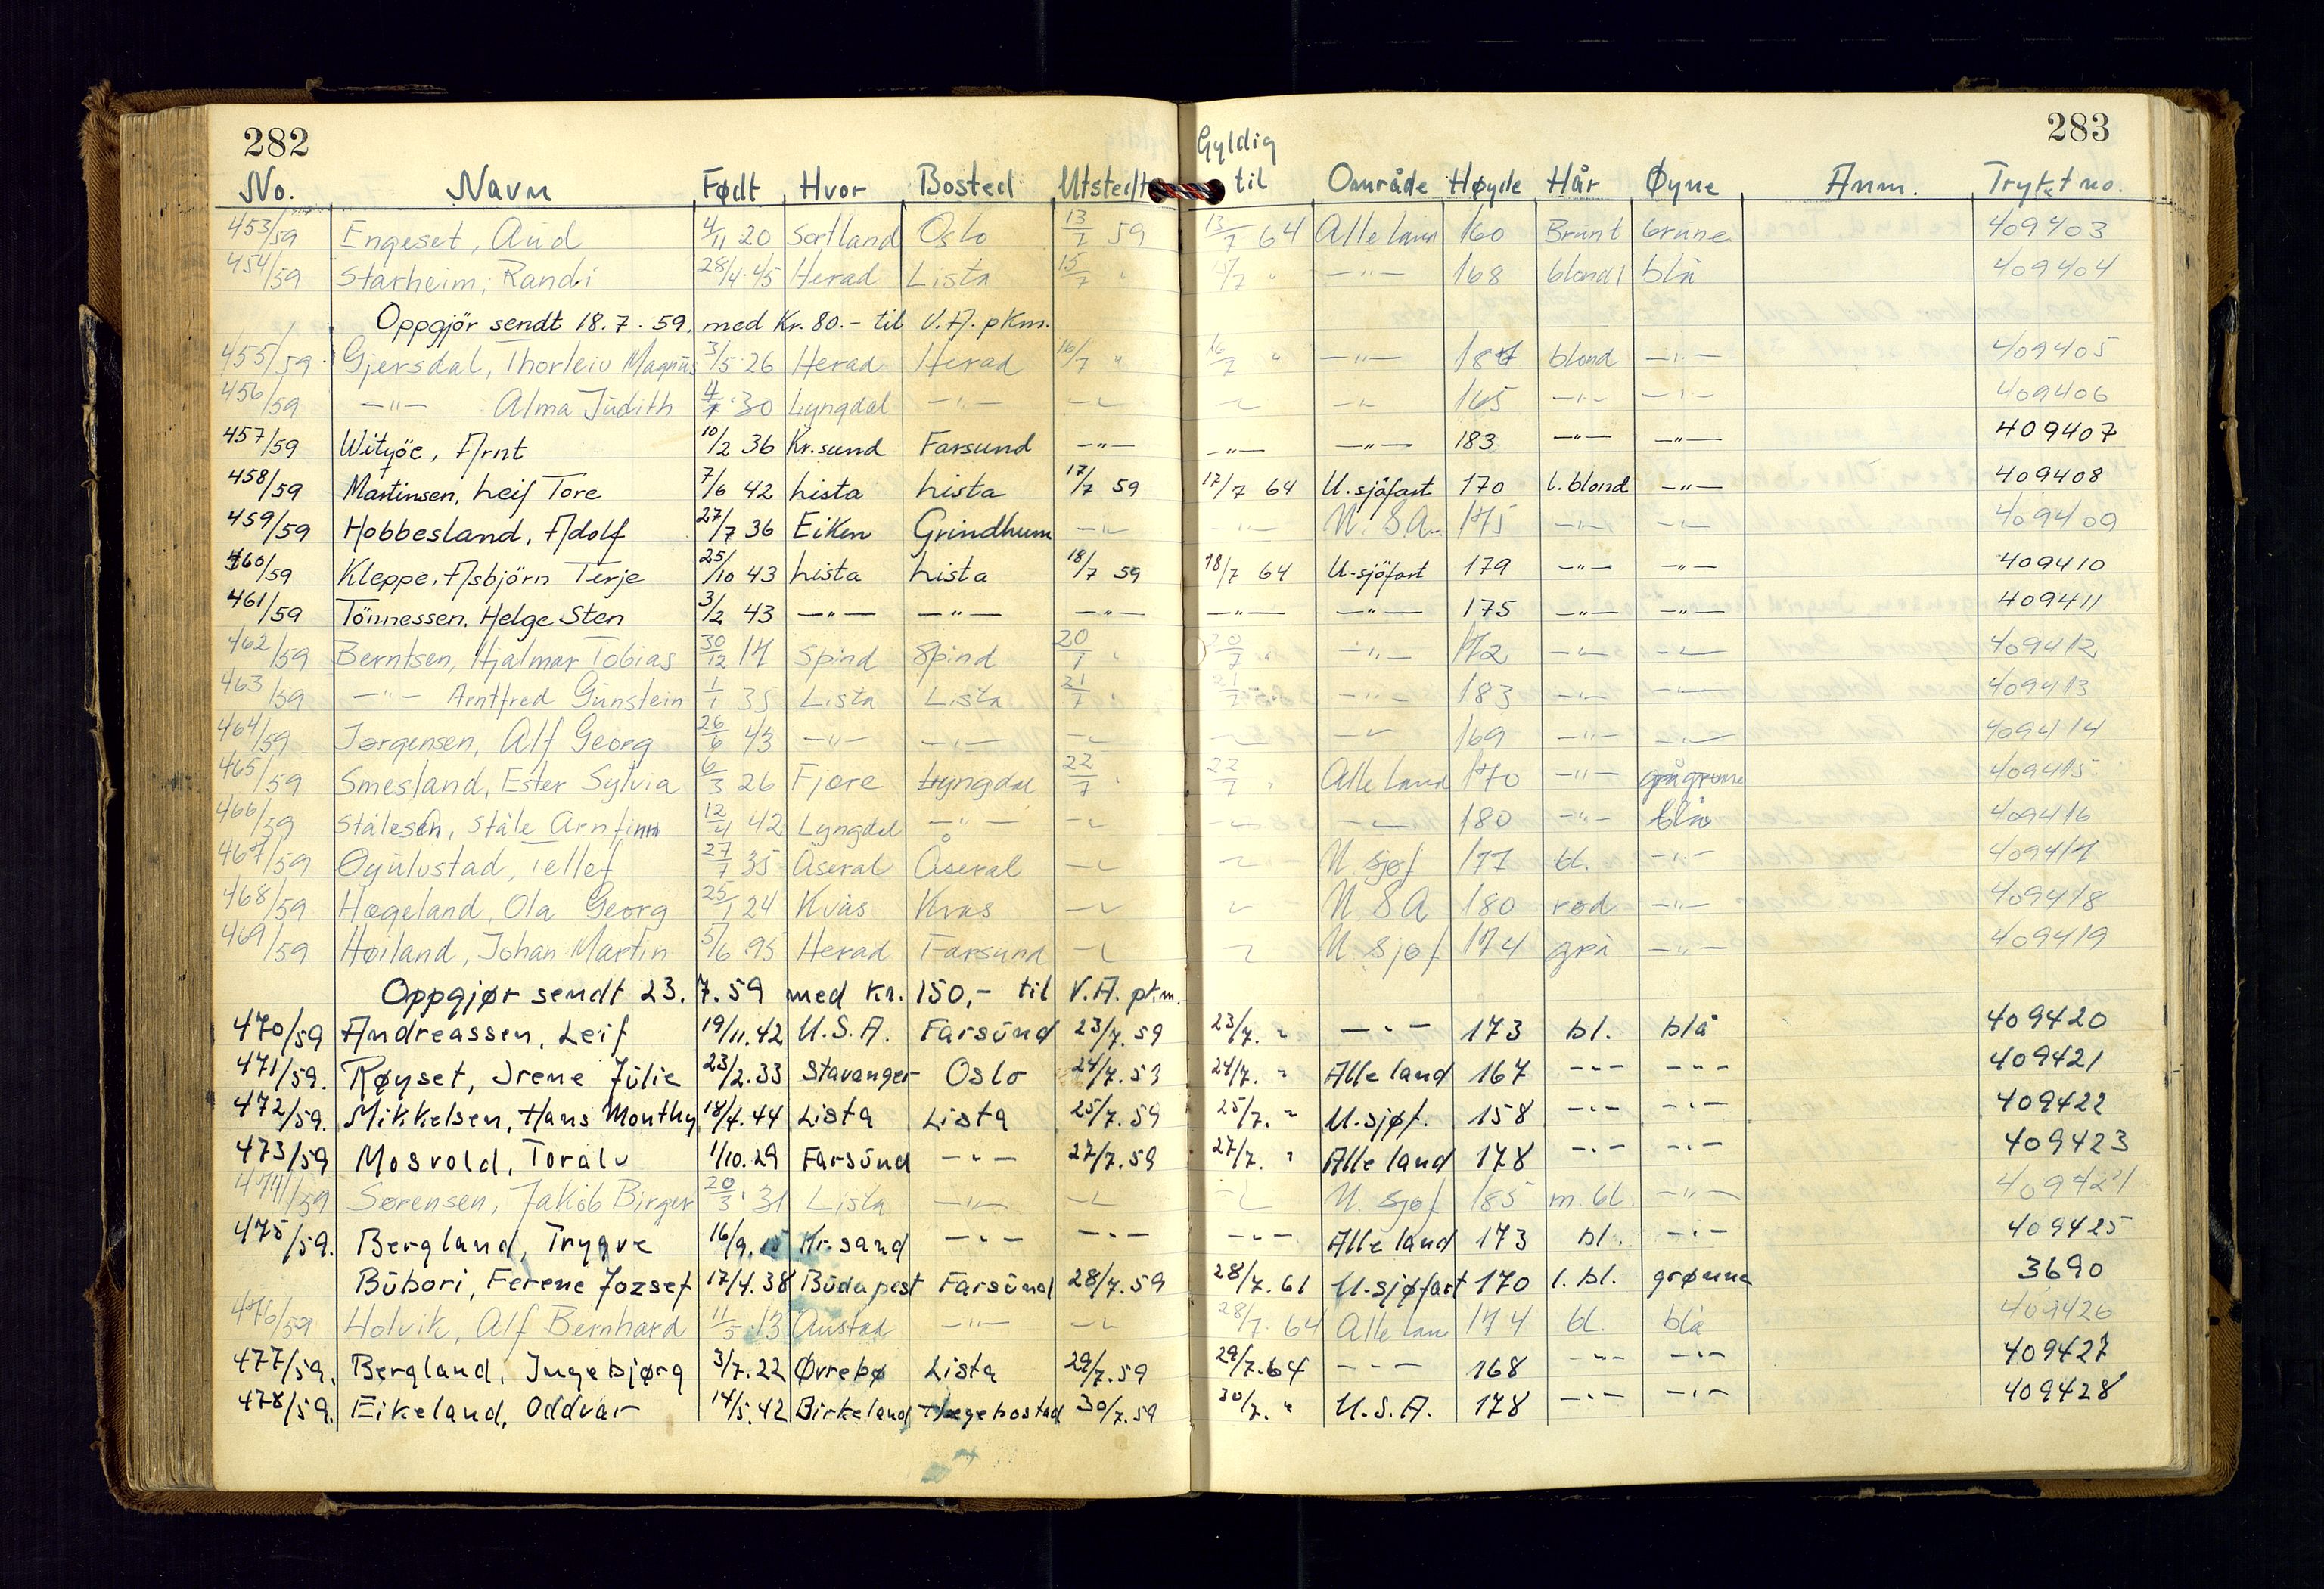 282
283
No. Navn Født Hvor Bosted Utstedt Gyldig til Område Høyde Hår Øyne Anm. Trykt no.
453/59 Engeset, Aud 4/11 20 Sortland Oslo 13/7 59 13/7 64 Alle land 160 Brunt brune 409403
454/59 Starheim, Randi 28/4 45 Herad Lista 15/7 " " —"— 168 blond blå 409404
Oppgjör sendt 18.7.59. med Kr. 80.- til V.A. pkm.
455/59 Gjersdal, Thorleiv Magnus 3/5 26 Herad Herad 16/7 " 16/7 " —"— blond —"— 409405
456/59 —"— Alma Judith 30 Lyngdal —"— —"— —"— —"— 165 —"— —"— 409406
457/59 Witzöe, Arnt 10/2 36 Kr.sund Farsund —"— —"— —"— 183 —"— —"— 409407
458/59 Martinsen, Leif Tore 7/6 42 Lista Lista 17/7 59 17/7 64 U.sjöfart 170 l.blond —"— 409408
459/59 Hobbesland, Adolf 27/7 36 Eiken Grindheim —"— —"— U.S.A. 175 —"— —"— 409409
460/59 Kleppe, Asbjörn Terje 25/10 43 Lista Lista 18/7 59 18/7 64 U-sjöfart 179 —"— —"— 409410
461/59 Tönnessen, Helge Sten 3/2 43 —"— —"— —"— —"— —"— 175 —"— —"— 409411
462/59 Berntsen, Hjalmar Tobias 30/12 17 Spind Spind 20/7 " 20/7 " —"— 172 —"— —"— 409412
463/59 —"— Arntfred Gunstein 1/1 35 Lista Lista 21/7 " 21/7 " —"— 183 —"— —"— 409413
464/59 Jørgensen, Alf Georg 26/6 43 —"— —"— —"— —"— —"— 169 —"— —"— 409414
465/59 Smesland, Ester Sylvia 6/3 26 Fjære Lyngdal 22/7 " 22/7 " Alle land 170 —"— grågrønne 409415
466/59 Stålesen, Ståle Arnfinn 12/4 42 Lyngdal —"— —"— —"— —"— 180 —"— blå 409416
467/59 Øgulvstad, Tellef 27/7 35 Åseral Åseral —"— —"— U.sjøf 177 bl. —"— 409417
468/59 Hægeland, Ola Georg 25/1 24 Kvås Kvås —"— —"— U.S.A 180 rød —"— 409418
469/59 Høiland, Johan Martin 5/6 95 Herad Farsund —"— —"— U.sjøf 174 grå —"— 409419
Oppgjør sendt 23.7.59 med Kr. 150,- til V.A. pkm.
470/59 Andreassen, Leif 19/11.42 U.S.A. Farsund 23/7.59 23/7. " —"— 173 bl. blå 409420
471/59. Røyset, Irene Julie 23/2.33 Stavanger Oslo 24/7.59 24/7. " Alle land 167 —"— —"— 409421
472/59. Mikkelsen, Hans Monthy 18/4.44 Lista Lista 25/7.59 25/7. " U.sjøf. 158 —"— —"— 409422
473/59 Mosvold, Toralv 1/10.29 Farsund —"— 27/7.59 27/7. " Alle land 178 —"— —"— 409423
474/59 Sørensen, Jakob Birger 20/3 31 Lista —"— —"— —"— U.sjøf 185 m.bl. —"— 409424
475/59. Bergland, Trygve 16/9. Kr.sand —"— —"— —"— Alle land 173 bl. —"— 409425
Bubori, Ferene Jozsef 17/4.38 Budapest Farsund 28/7.59 28/7.61 U.sjøfart 170 l.bl. grønne 3690
476/59 Holvik, Alf Bernhard 11/5 13 Austad —"— —"— 28/7.64 Alle lan 174 bl. blå 409426
477/59. Bergland, Ingebjørg 3/7.22 Øvrebø Lista 29/7.59 29/7.64 —"— 168 —"— —"— 409427
478/59. Eikeland, Oddvar 14/5.42 Birkeland Hægebostad 30/7.59 30/7. " U.S.A. 178 —"— —"— 409428